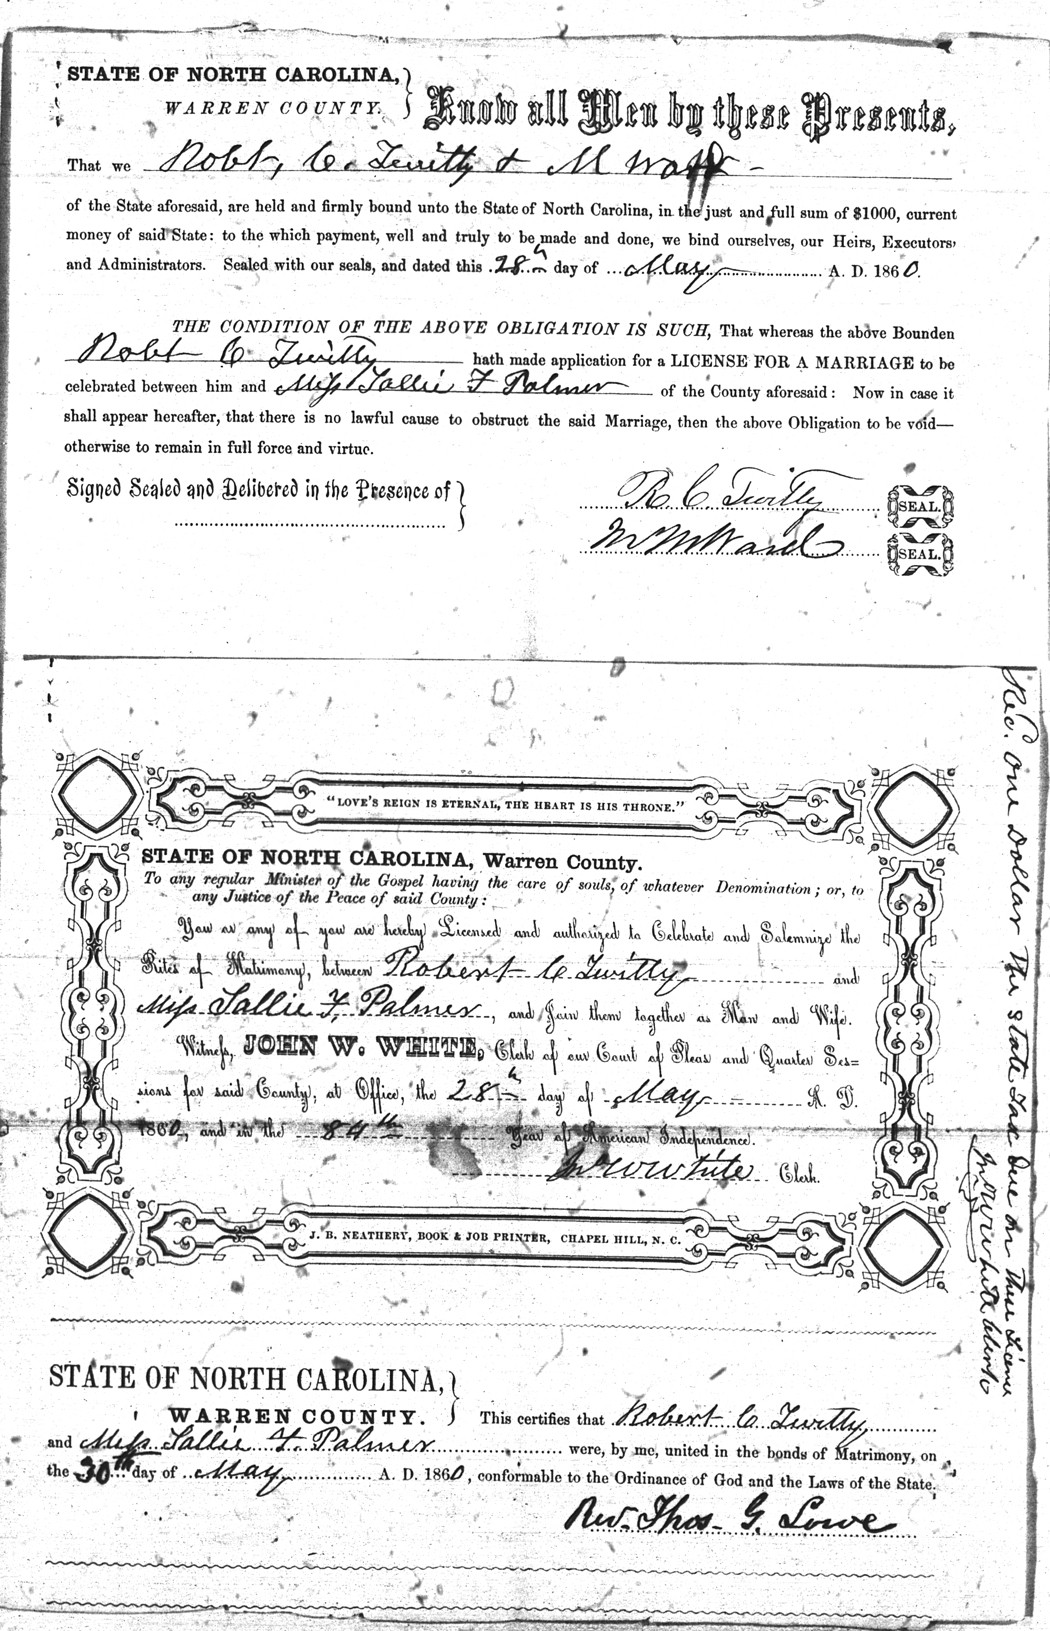 STATE OF NORTH CAROLINA,
WARREN COUNTY.
Know all Men by these Presents,
That we Robt, C. Twitty & M
of the State aforesaid, are held and firmly bound unto the State of North Carolina, in the just and full sum of $1000, current
money of said State: to the which payment, well and truly to be made and done, we bind ourselves, our Heirs, Executors,
and Administrators. Sealed with our seals, and dated this 28th day of May A. D. 1860.
THE CONDITION OF THE ABOVE OBLIGATION IS SUCH, That whereas the above Bounden
Robt C Twitty hath made application for a LICENSE FOR A MARRIAGE to be
celebrated between him and Miss Sallie F Palmer of the County aforesaid: Now in case it
shall appear hereafter, that there is no lawful cause to obstruct the said Marriage, then the above Obligation to be void—
otherwise to remain in full force and virtue.
Signed Sealed and Delivered in the Presence of
R. C. Twitty SEAL.
M Ward SEAL.
"LOVE'S REIGN IS ETERNAL, THE HEART IS HIS THRONE."
STATE OF NORTH CAROLINA, Warren County.
To any regular Minister of the Gospel having the care of souls, of whatever Denomination; or, to
any Justice of the Peace of said County:
You or any of you are hereby Licensed and authorized to Celebrate and Solemnize the
Rites of Matrimony, between Robert C Twitty and
Miss Sallie F. Palmer, and Join them together as Man and Wife.
Witness, JOHN W. WHITE, Clerk of our Court of Pleas and Quarter Ses=
sions for said County, at Office, the 28th day of May A. D.
1860, and in the 84th Year of American Independence.
Jn W White Clerk.
J. B. NEATHERY, BOOK & JOB PRINTER, CHAPEL HILL, N. C.
Rec. One Dollar The State Tax Due on These License
Jn W White Clerk
STATE OF NORTH CAROLINA,
WARREN COUNTY.
This certifies that Robert C. Twitty
and Miss Sallie F. Palmer were, by me, united in the bonds of Matrimony, on
the 30th day of May A. D. 1860, conformable to the Ordinance of God and the Laws of the State.
Rev. Thos. G. Lowe